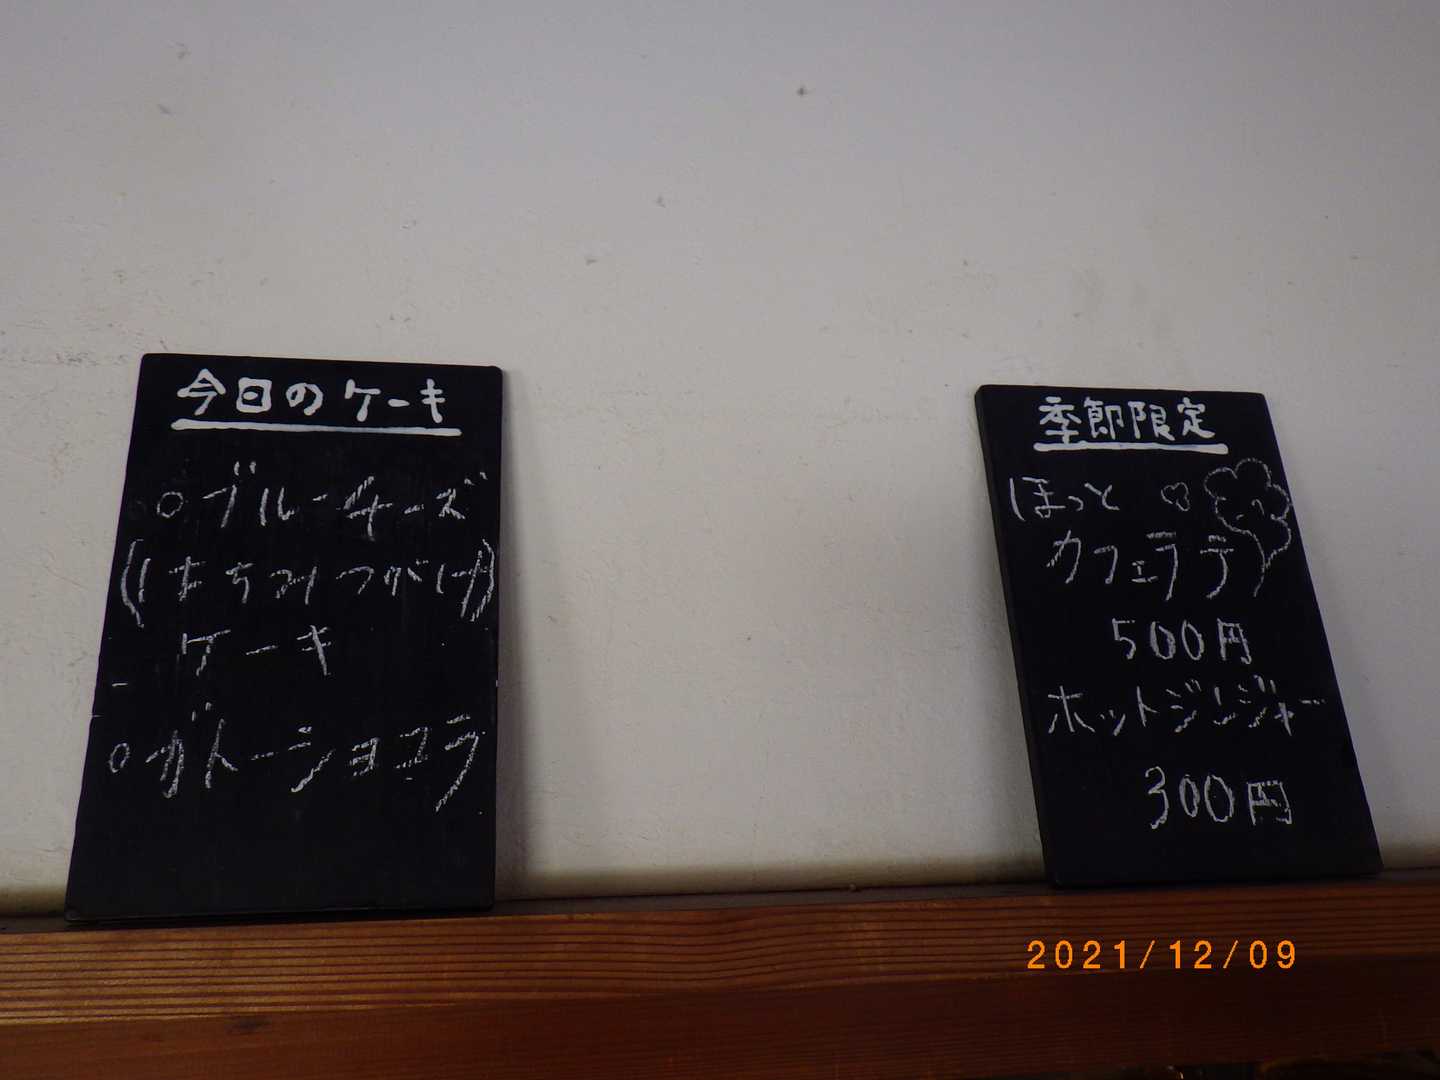 今日のケーキ
○ブルーチーズ
(はちみつがけ)
ケーキ
○ガトーショコラ
季節限定
ほっと
カフェラテ
500円
ホットジンジャー
300円
2021/12/09